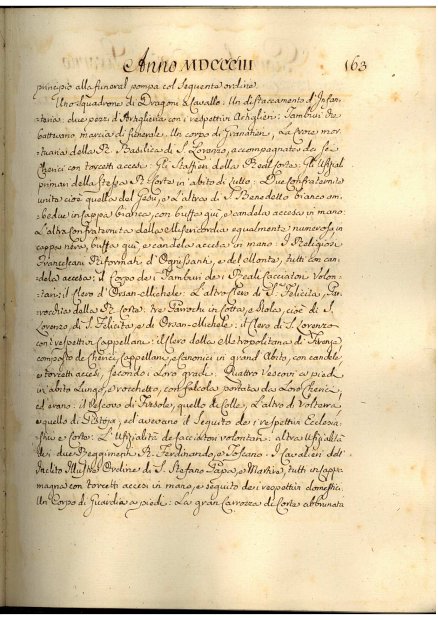 Anno MDCCCIII 163
principio alla funeral pompa col sequente ordine
Uno Squadrone di Dragoni a Cavallo: Un distaccamento d'Infan-
=taria: due pezzi d'Artiglieria con i respettivi Artiglieri: Tamburi che
battevano marcia di funerale. Un corpo di Granatieri, La Croce mor-
=tuaria della R. Basilica di S. Lorenzo, accompagnata da sei
Cherici con torcetti accesi: Gli Staffieri della Real Corte: Gli Uffiziali
primari della stessa R. Corte in abito di lutto: Due Confraternite
unite cioè quella del Gesù, e l'altra di S. Benedetto Bianco am-
bedue in cappa bianca, con buffa qui, e candela accesa in mano:
L'altra confraternita della Misericordia egualmente numerosa in
cappa nera, buffa qui, e candela accesa in mano: I Religiosi
Francescani Riformati d'Ognissanti, e del Monte, tutti con can-
dela accesa: il Corpo dei Tamburi dei Reali Cacciatori Volon-
=tari: il Clero d'Orsan-Michele: L'altro Clero di S. Felicita, Par-
rocchia della R. Corte: tre Parrochi in Cotta, e Stola, cioè di S.
Lorenzo di S. Felicita, e di Orsan-Michele: il Clero di S. Lorenzo
con i respettivi Cappellani: il Clero della Metropolitana di Firenze
composto de Cherici, Cappellani, e Canonici in grand'Abito, con candele
e torcetti accesi, secondo i Loro gradi. Quattro Vescovi a piedi
in abito Lungo, e rocchetto, con falcola portata da Loro Cherici,
ed erano: il Vescovo di Fiesole, quello di Colle, L'altro di Volterra
e quello di Pistoja, ed avevano il Seguito de i respettivi Ecclesia-
stici e Corte: L'Uffizialità de Cacciatori volontari: altra Uffizialità
dei due Reggimenti R. Ferdinando, e Toscano: I Cavalieri dell'
Inclito Militar Ordine di S. Stefano Papa, e Martire, tutti in cappa
magna con torcetti accesi in mano, e seguito de i respettivi domestici.
Un Corpo di Guardia a piedi: La gran Carrozza di Corte abbrunata